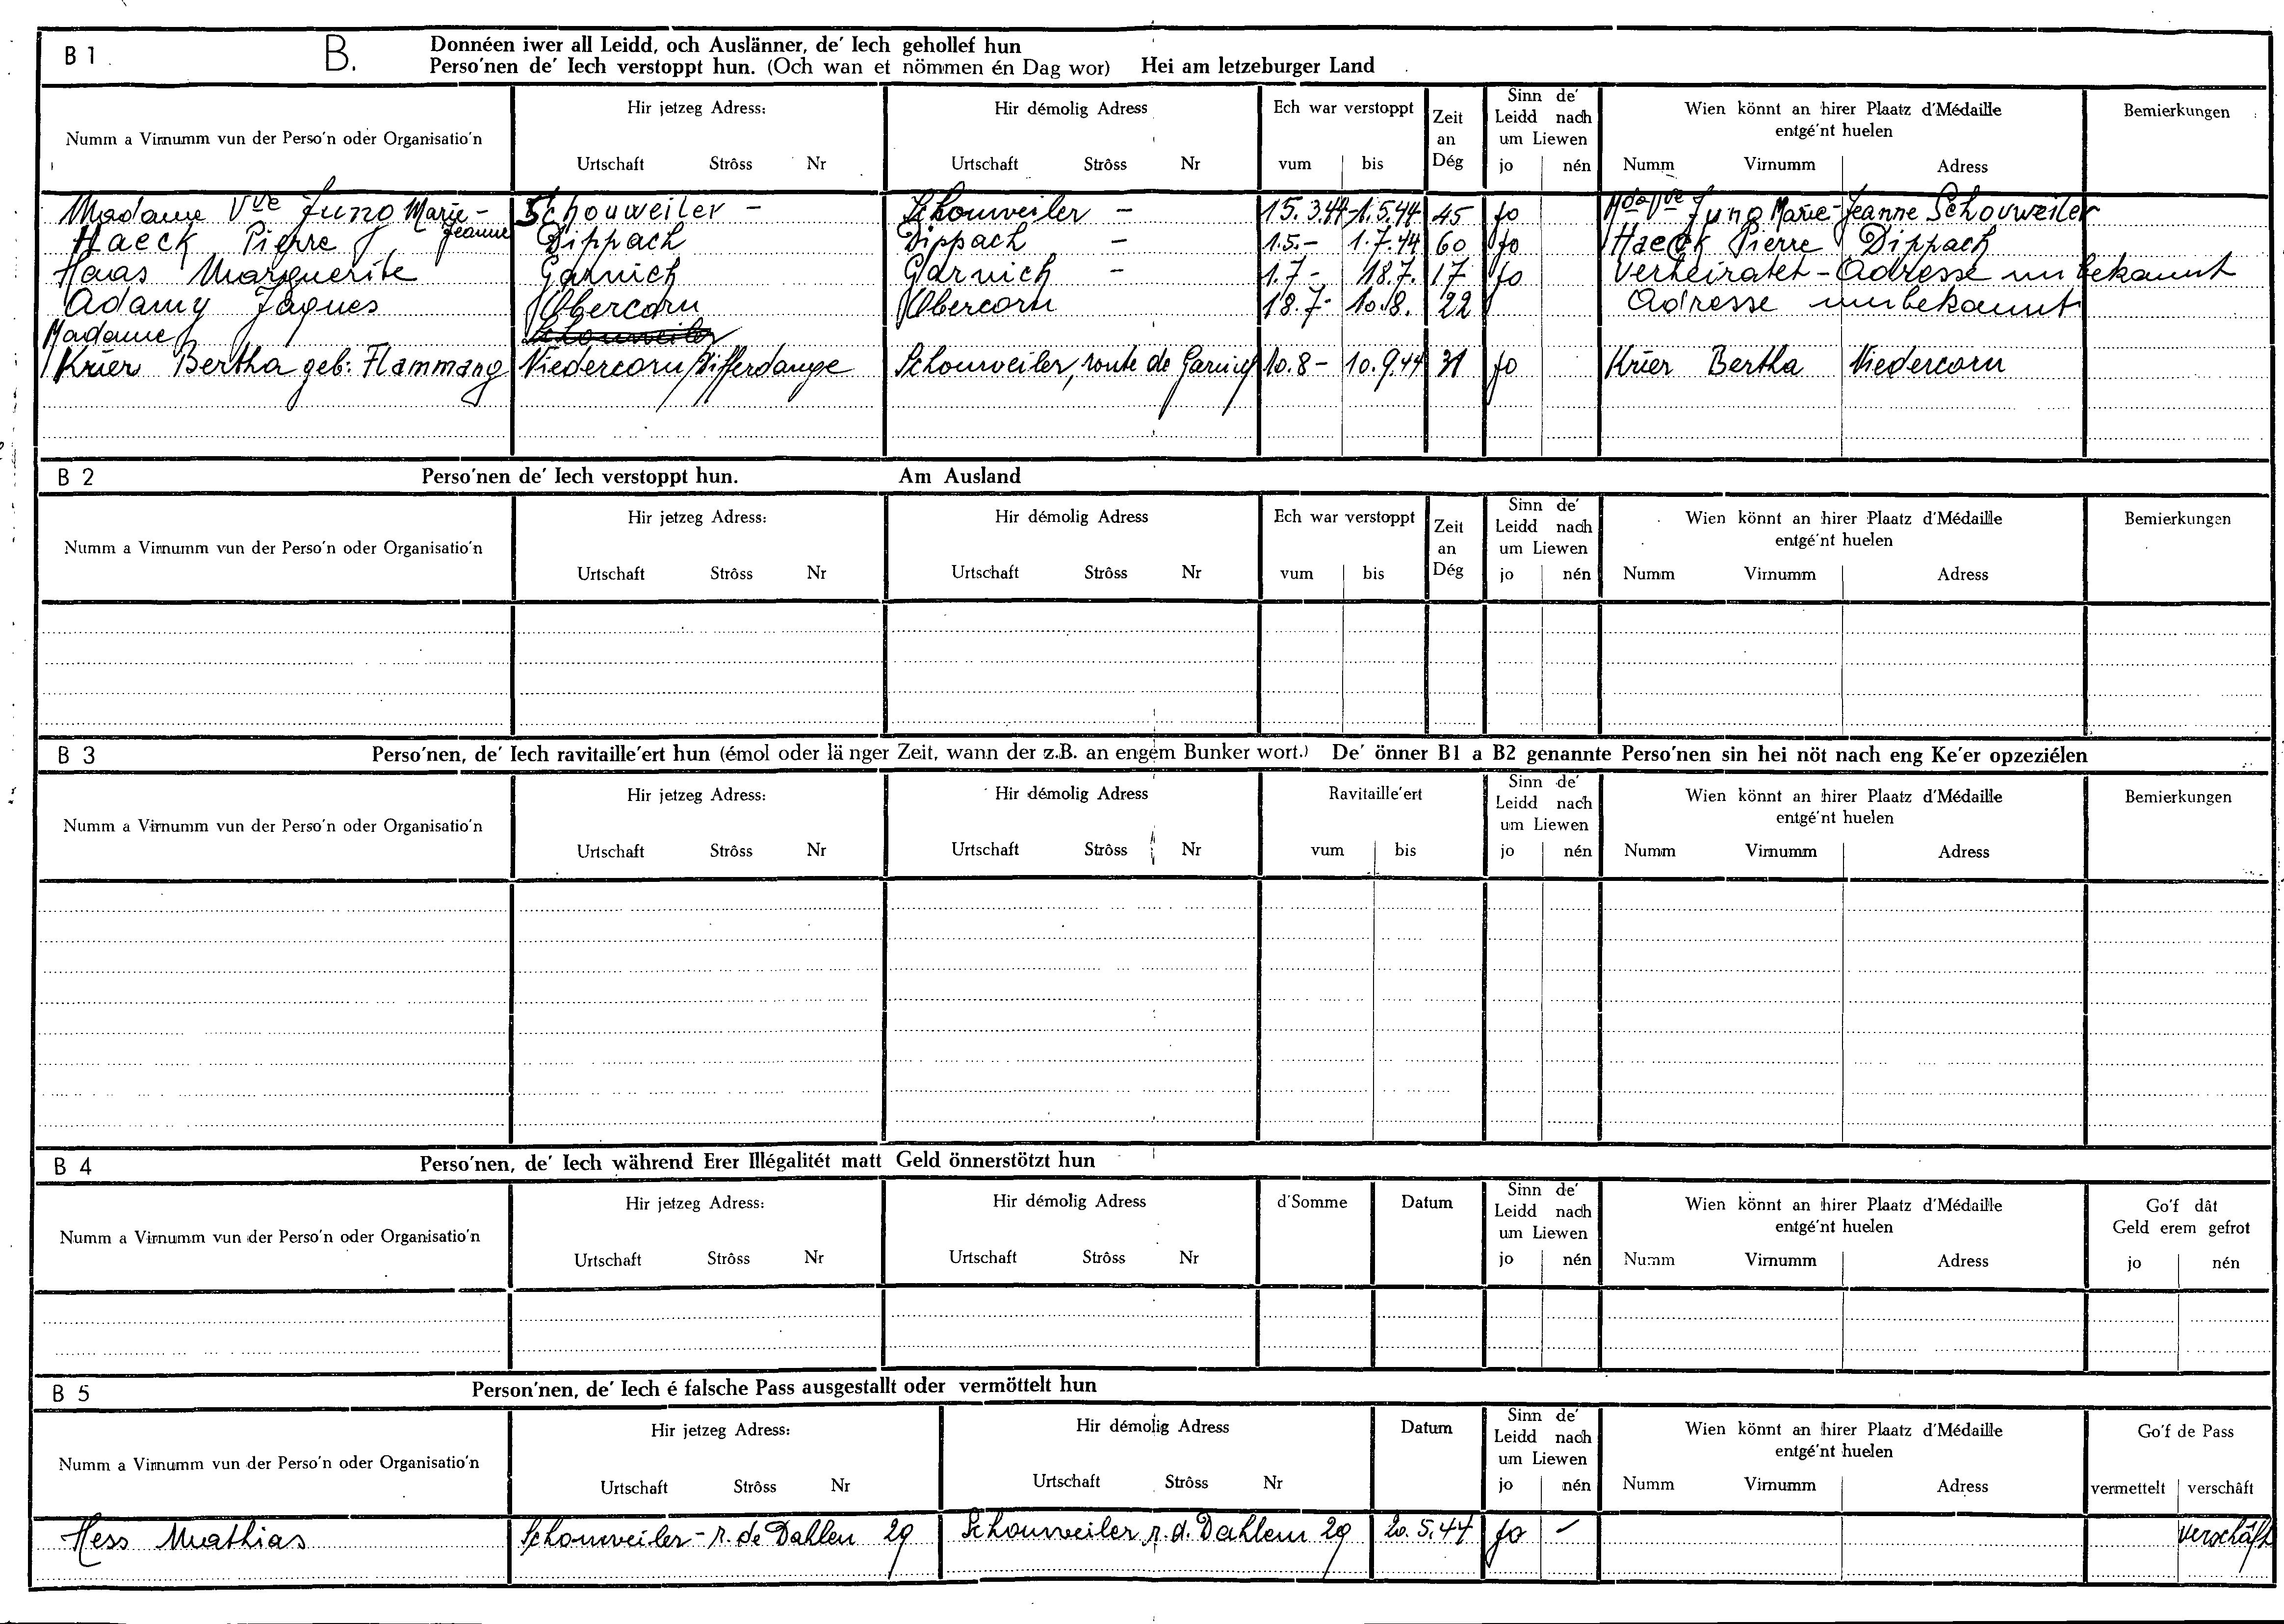 B 1 B. Donnéen iwer all Leidd, och Auslänner, de' Iech gehollef hun
Perso'nen de' Iech verstoppt hun. (Och wan et nömmen én Dag wor) Hei am letzeburger Land
Numm a Virnumm vun der Perso'n oder Organisatio'n
Hir jetzeg Adress:
Urtschaft Strôss Nr
Hir démolig Adress
Urtschaft Strôss Nr
Ech war verstoppt
vum bis
Zeit
an
Dég
Sinn de'
Leidd nach
um Liewen
jo nén
Wien könnt an hirer Plaatz d'Médaille
entgé'nt huelen
Numm Virnumm Adress
Bemierkungen
Madame Vve Jung Marie-Jeanne Schouweiler - Schouweiler - 15.3.44 - 1.5.44 45 jo Mde Vve Jung Marie-Jeanne Schouweiler
Haeck Pierre Dippach Dippach - 1.5.- 1.7.44 60 jo Haeck Pierre Dippach
Haas Marguerite Garnich Garnich - 1.7- 18.7. 17 jo verheiratet - Adresse unbekannt
Adamy Jaques Obercorn Obercorn 18.7- 10.8. 22 Adresse unbekannt
Madame Schouweiler
Krier Bertha geb. Flammang Niedercorn/Differdange Schouweiler, route de Garnich 10.8- 10.9.44 31 jo Krier Bertha Niedercorn
B 2 Perso'nen de' Iech verstoppt hun. Am Ausland
Numm a Virnumm vun der Perso'n oder Organisatio'n
Hir jetzeg Adress:
Urtschaft Strôss Nr
Hir démolig Adress
Urtschaft Strôss Nr
Ech war verstoppt
vum bis
Zeit
an
Dég
Sinn de'
Leidd nach
um Liewen
jo nén
Wien könnt an hirer Plaatz d'Médaille
entgé'nt huelen
Numm Virnumm Adress
Bemierkungen
B 3 Perso'nen, de' Iech ravitaille'ert hun (émol oder länger Zeit, wann der z.B. an engem Bunker wort.) De' önner B1 a B2 genannte Perso'nen sin hei nöt nach eng Ke'er opzeziélen
Numm a Virnumm vun der Perso'n oder Organisatio'n
Hir jetzeg Adress:
Urtschaft Strôss Nr
Hir démolig Adress
Urtschaft Strôss Nr
Ravitaille'ert
vum bis
Sinn de'
Leidd nach
um Liewen
jo nén
Wien könnt an hirer Plaatz d'Médaille
entgé'nt huelen
Numm Virnumm Adress
Bemierkungen
B 4 Perso'nen, de' Iech während Erer Illégalitét matt Geld önnerstötzt hun
Numm a Virnumm vun der Perso'n oder Organisatio'n
Hir jetzeg Adress:
Urtschaft Strôss Nr
Hir démolig Adress
Urtschaft Strôss Nr
d'Somme
Datum
Sinn de'
Leidd nach
um Liewen
jo nén
Wien könnt an hirer Plaatz d'Médaille
entgé'nt huelen
Numm Virnumm Adress
Go'f dât
Geld erem gefrot
jo nén
B 5 Person'nen, de' Iech é falsche Pass ausgestallt oder vermöttelt hun
Numm a Virnumm vun der Perso'n oder Organisatio'n
Hir jetzeg Adress:
Urtschaft Strôss Nr
Hir démolig Adress
Urtschaft Strôss Nr
Datum
Sinn de'
Leidd nach
um Liewen
jo nén
Wien könnt an hirer Plaatz d'Médaille
entgé'nt huelen
Numm Virnumm Adress
Go'f de Pass
vermettelt verschâft
Hess Mathias Schouweiler - r. de Dahlen 29 Schouweiler r. d. Dahlem 29 20.5.44 jo - verschâft